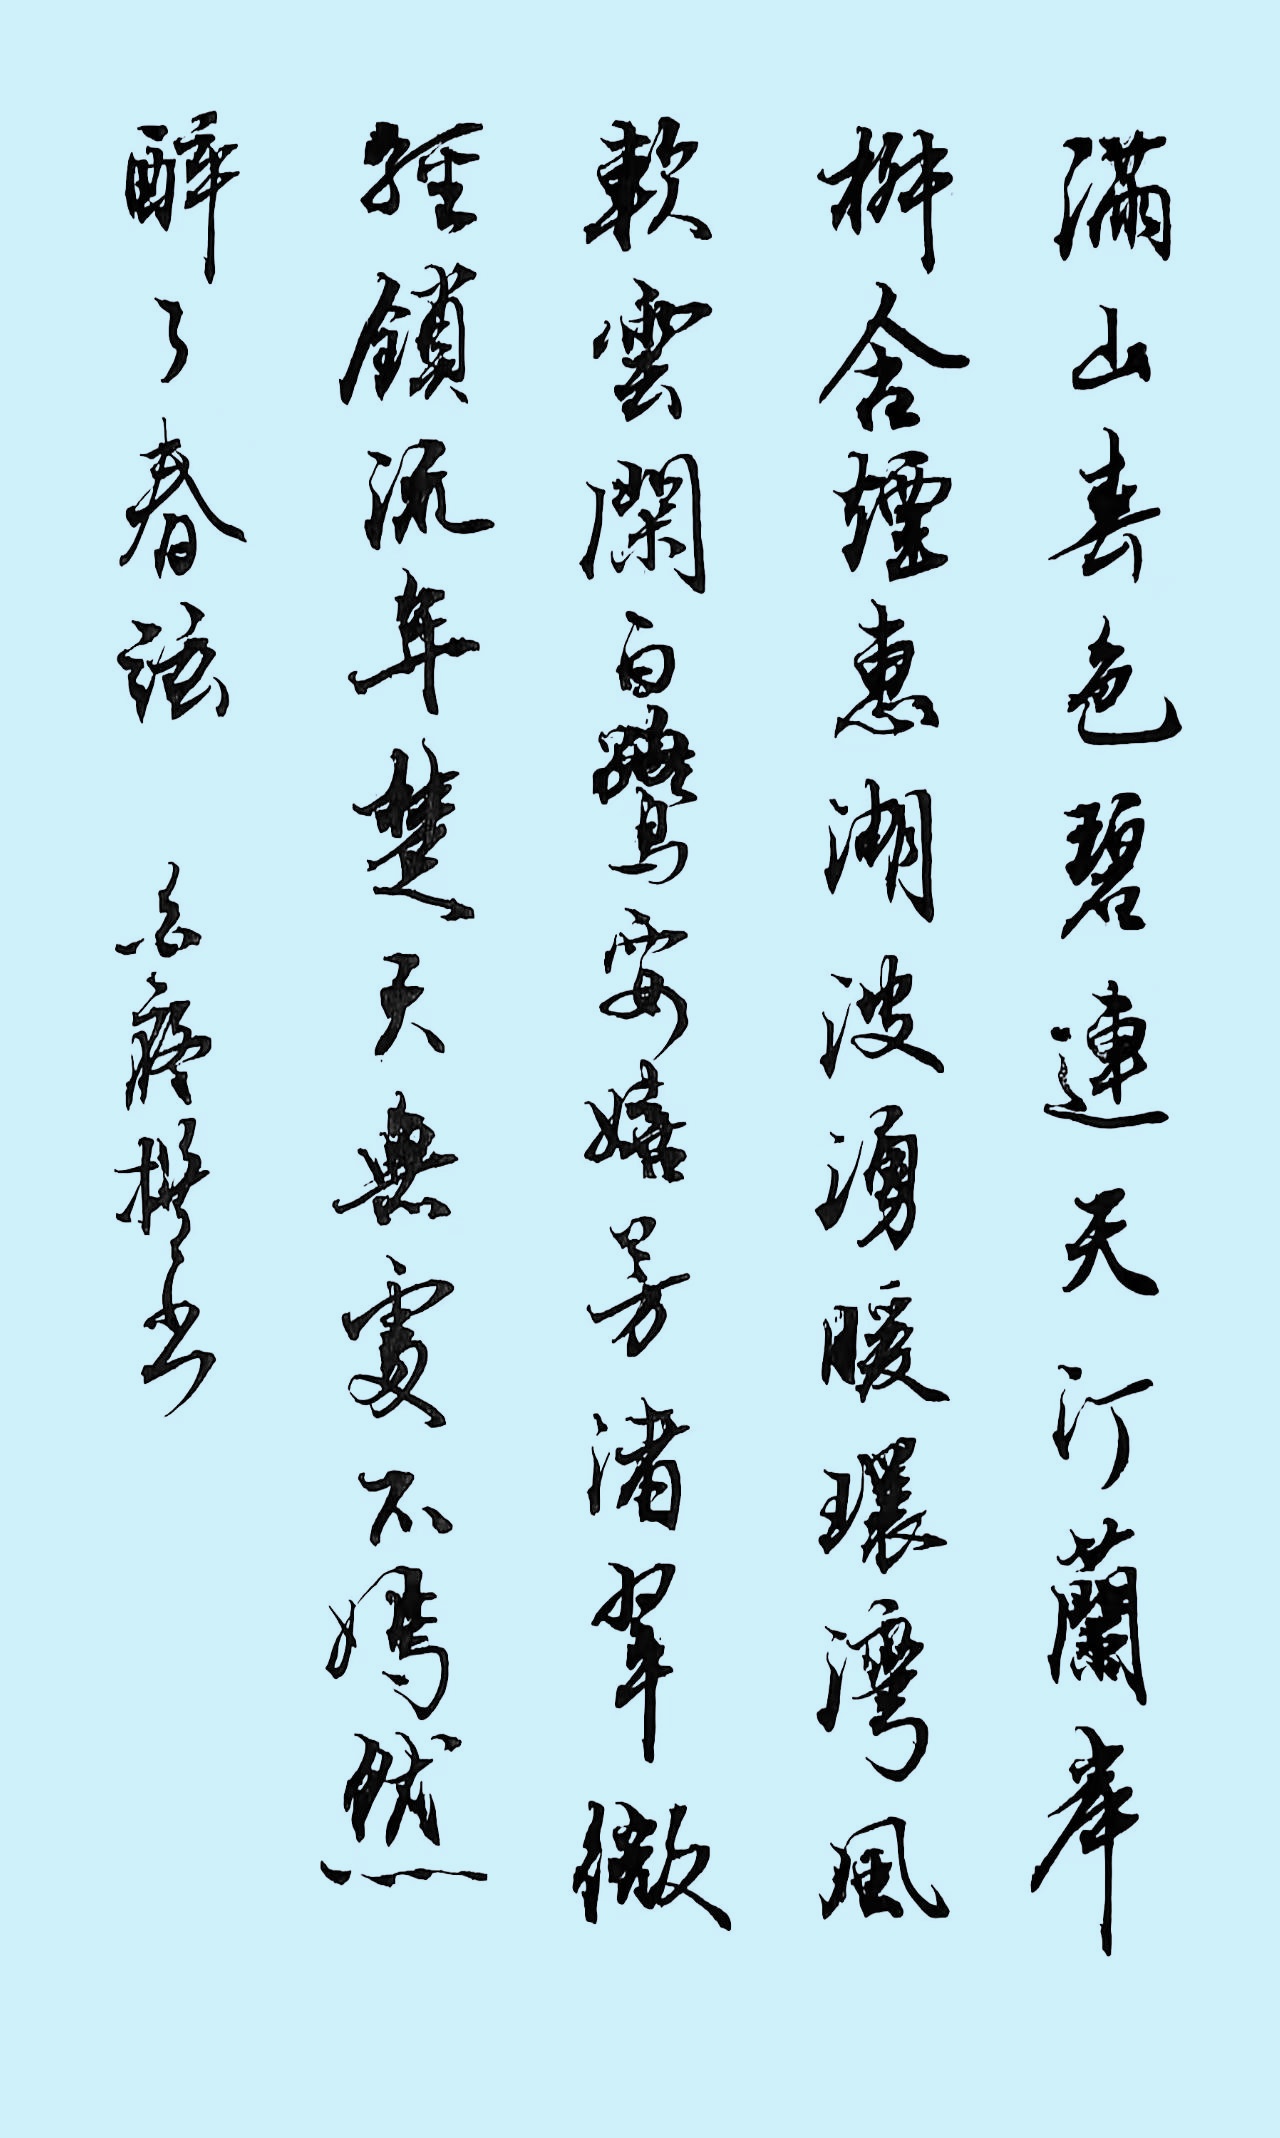 滿山春色碧連天汀蘭岸
柳含煙惠湖波湧暖環灣風
軟雲閑白鷺耍嬉芳渚翠微
輕鎖流年楚天無處不嫣然
醉了春弦 书